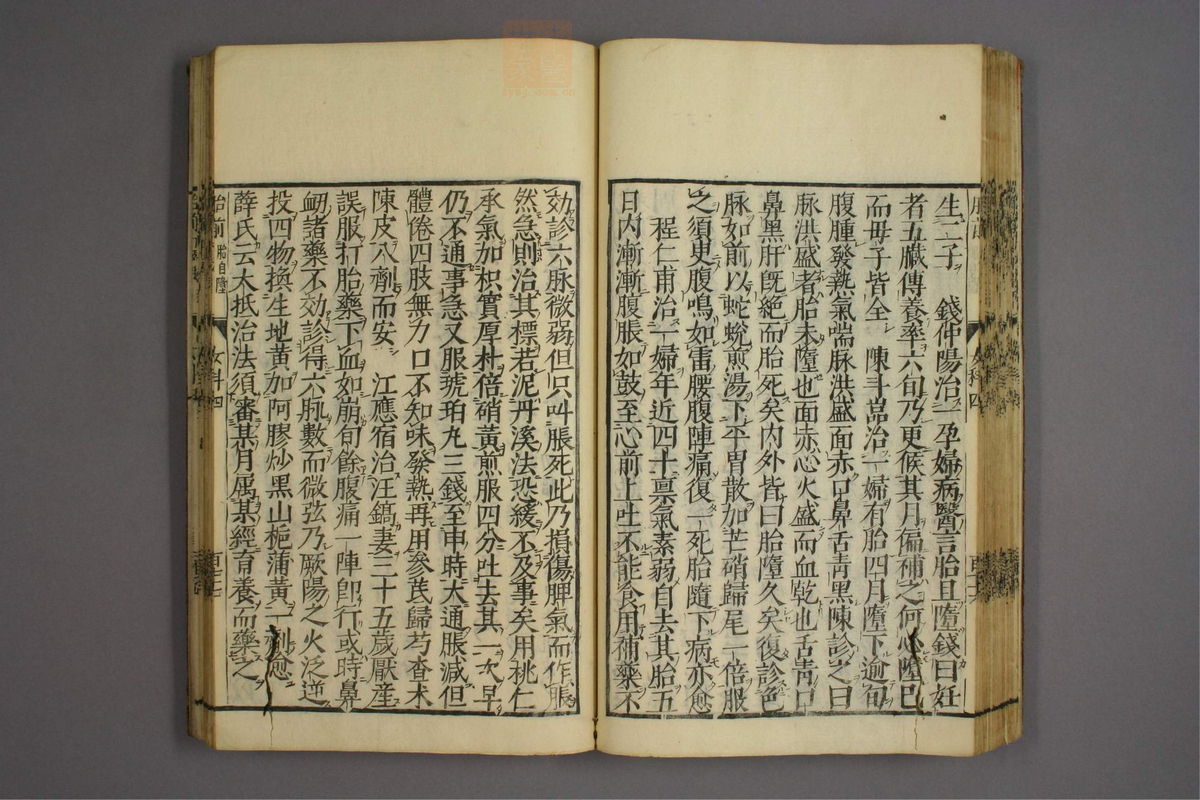 生二子　錢仲陽治一孕婦病醫言胎且墮錢曰妊
者五臟傳養率六旬乃更候其月偏補之何必墮已
而母子皆全　陳斗嵓治一婦有胎四月墮下逾旬
腹腫發熱氣喘脉洪盛面赤口鼻舌青黑陳診之曰
脉洪盛者胎未墮也面赤心火盛而血乾也舌青口
鼻黑肝旣絕而胎死矣内外皆曰胎墮久矣復診色
脉如前以蛇蛻煎湯下平胃散加芒硝歸尾一倍服
之須臾腹鳴如雷腰腹陣痛復一死胎隨下病亦愈
程仁甫治一婦年近四十禀氣素弱自去其胎五
日内漸漸腹脹如鼓至心前上吐不能食用補藥不
效診六脉微弱但只叫脹死此乃損傷脾氣而作脹
然急則治其標若泥丹溪法恐緩不及事矣用桃仁
承氣加枳實厚朴倍硝黃煎服四分吐去其一次早
仍不通事急又服琥珀丸三錢至申時大通脹減但
體倦四肢無力口不知味發熱再用參芪歸芍査术
陳皮八劑而安　江應宿治汪鎬妻三十五歲厭産
誤服打胎藥下血如崩旬餘腹痛一陣卽行或時鼻
衂諸藥不効診得六脉數而微弦乃厥陽之火泛逆
投四物換生地黄加阿膠炒黑山梔蒲黃一劑愈
薛氏云大抵治法須審某月属某經育養而藥之
胎前　胎自墮　女科四　百七十七